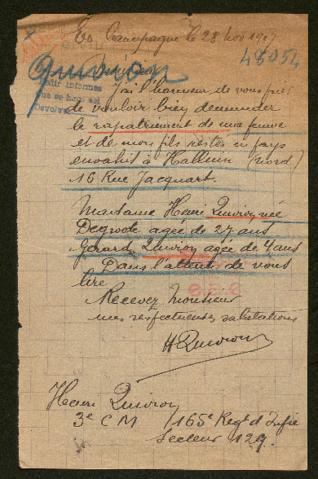 En Campagne le 28 Nov 1917
48054
Quivron
Pedir informes
Devolver
J'ai l'honneur de vous prier
de vouloir bien demander
le rapatriement de ma femme
et de mon fils restés en pays
envahit à Halluin (Nord)
16 Rue Jacquart.
Madame Henri Quivron née
Degrode agée de 27 ans
Gérard Quivron agée de 4 ans
Dans l'attente de vous
lire
Recevez Monsieur
mes respectueuses salutations
H Quivron
Henri Quivron
3e C M / 165e Regt d'Infie
Secteur 129.